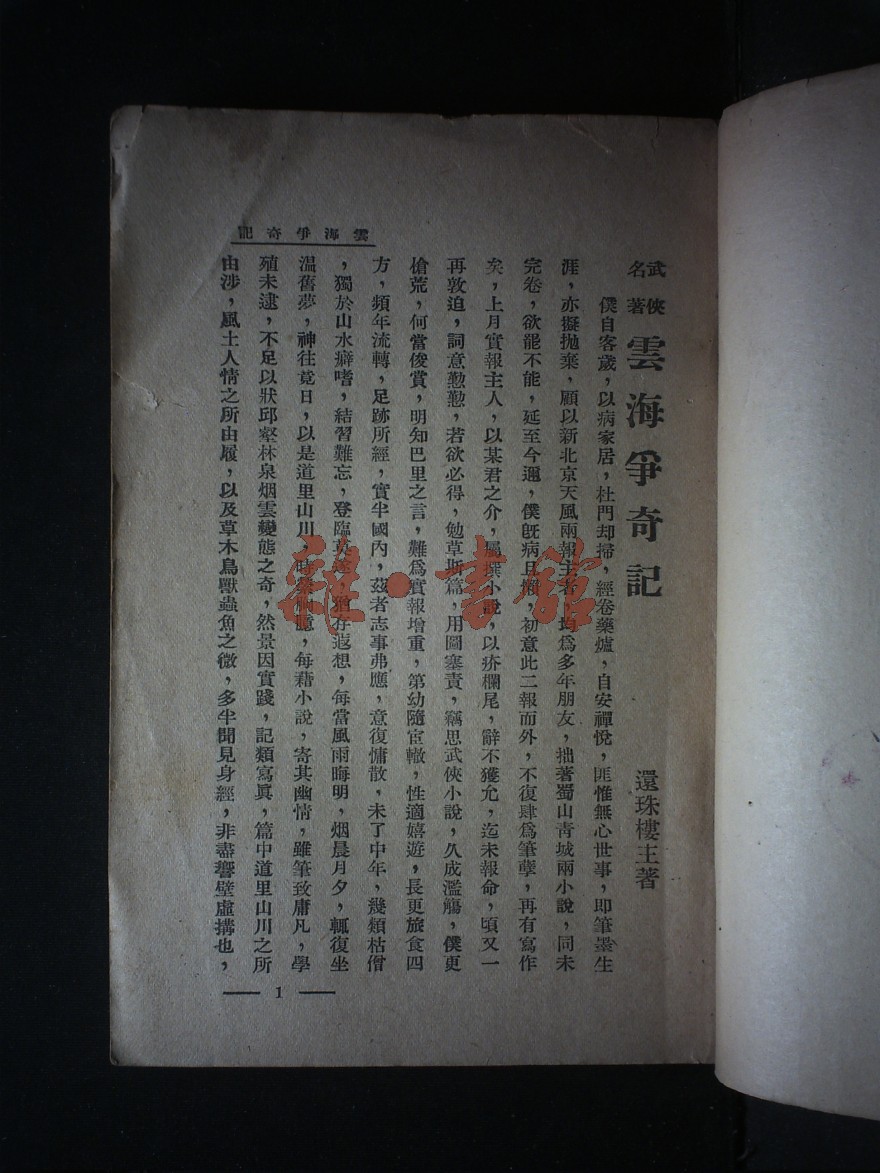 武俠
名著
雲海爭奇記
還珠樓主著
僕自客歲，以病家居，杜門却掃，經卷藥爐，自安禪悅，匪惟無心世事，即筆墨生
涯，亦擬拋棄，顧以新北京天風兩報主者，均爲多年朋友，拙著蜀山青城兩小說，同未
完卷，欲罷不能，延至今邇，僕旣病且懶，初意此二報而外，不復肆爲筆孽，再有寫作
矣，上月實報主人，以某君之介，屬撰小說，以疥欄尾，辭不獲允，迄未報命，頃又一
再敦迫，詞意懃懃，若欲必得，勉草斯篇，用圖塞責，竊思武俠小說，久成濫觴，僕更
傖荒，何當俊賞，明知巴里之言，難爲實報增重，第幼隨宦轍，性適嬉遊，長更旅食四
方，頻年流轉，足跡所經，實半國內，茲者志事弗應，意復慵散，未了中年，幾類枯僧
，獨於山水癖嗜，結習難忘，登臨莫遂，猶存遐想，每當風雨晦明，烟晨月夕，輒復坐
溫舊夢，神往竟日，以是道里山川，時縈胸臆，每藉小說，寄其幽情，雖筆致庸凡，學
殖未逮，不足以狀邱壑林泉烟雲變態之奇，然景因實踐，記類寫眞，篇中道里山川之所
由涉，風土人情之所由履，以及草木鳥獸蟲魚之微，多半聞見身經，非盡響壁虛搆也，
雲海爭奇記
1
雜·書館